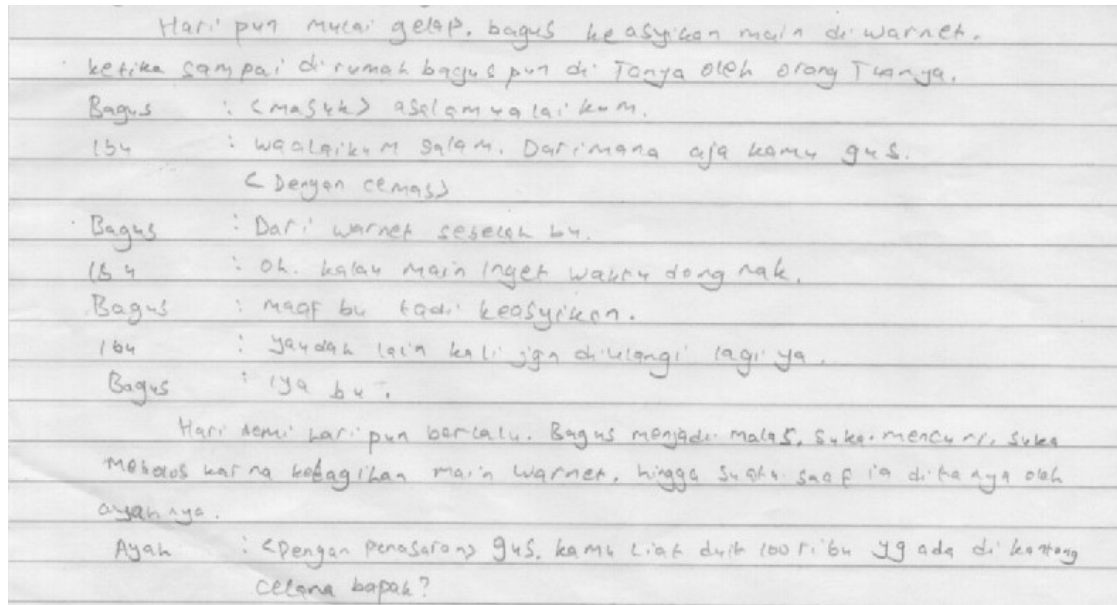 Hari pun mulai gelap. bagus keasyikan main di warnet.
ketika sampai di rumah bagus pun di Tanya oleh orang Tuanya.
Bagus : <masuk> aselamualaikum.
Ibu : waalaikum salam. Darimana aja kamu gus.
<Dengan cemas>
Bagus : Dari warnet sebelah bu.
Ibu : oh. kalau main inget waktu dong nak.
Bagus : maaf bu tadi keasyikan.
Ibu : yaudah lain kali jgn diulangi lagi ya.
Bagus : iya bu.
Hari demi hari pun berlalu. Bagus menjadi malas, suka mencuri, suka
mebolos karna ketagihan main warnet, hingga suatu saat ia ditanya oleh
ayahnya.
Ayah : <Dengan penasaran> gus, kamu liat duit 100 ribu yg ada di kantong
celana bapak?